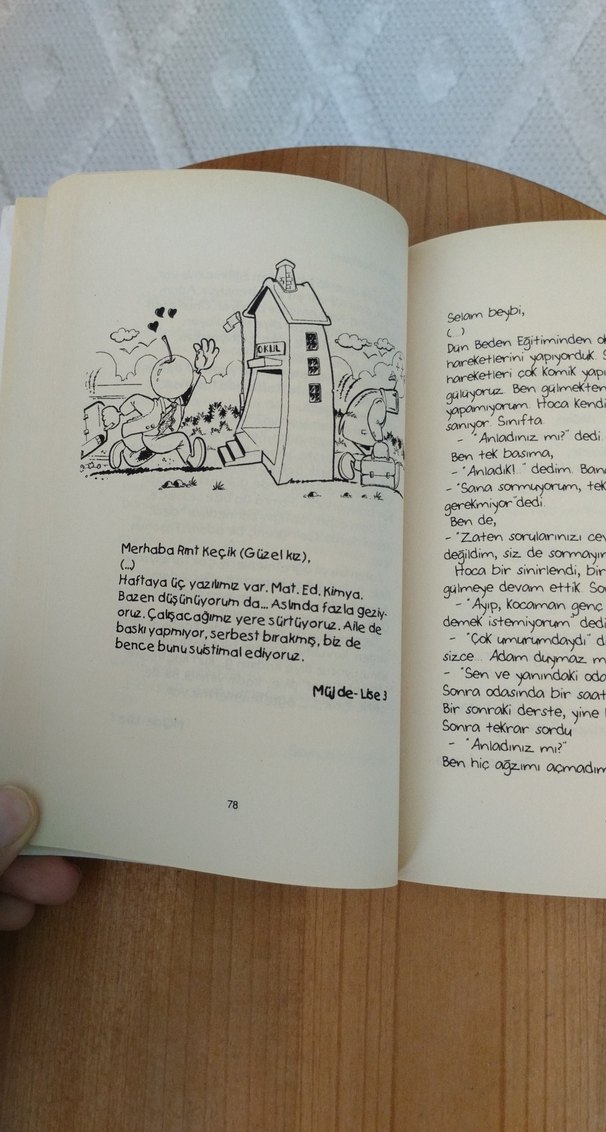 OKUL
Merhaba Rmt Keçik (Güzel kız),
(...)
Haftaya üç yazılımız var. Mat. Ed. Kimya.
Bazen düşünüyorum da... Aslında fazla geziy-
oruz. Çalışacağımız yere sürtüyoruz. Aile de
baskı yapmıyor, serbest bırakmış, biz de
bence bunu suistimal ediyoruz.
Müjde-Lise 3
78
Selam beybi,
(...)
Dün Beden Eğitiminden
hareketlerini yapıyorduk.
hareketleri çok komik
gülüyoruz. Ben gülmekten
yapamıyorum. Hoca
sanıyor. Sınıfta
- "Anladınız mı?" dedi
Ben tek başıma,
- "Anladık!..." dedim.
- "Sana sormuyorum,
gerekmiyor" dedi.
Ben de,
- "Zaten sorularınızı
değildim, siz de
Hoca bir sinirlendi, bir
gülmeye devam ettik.
- "Ayıp, kocaman genç
demek istemiyorum"
- "Çok umurumdaydı"
sizce... Adam duymaz
- "Sen ve yanındaki
Sonra odasında bir saat
Bir sonraki derste, yine
Sonra tekrar sordu
- "Anladınız mı?"
Ben hiç ağzımı